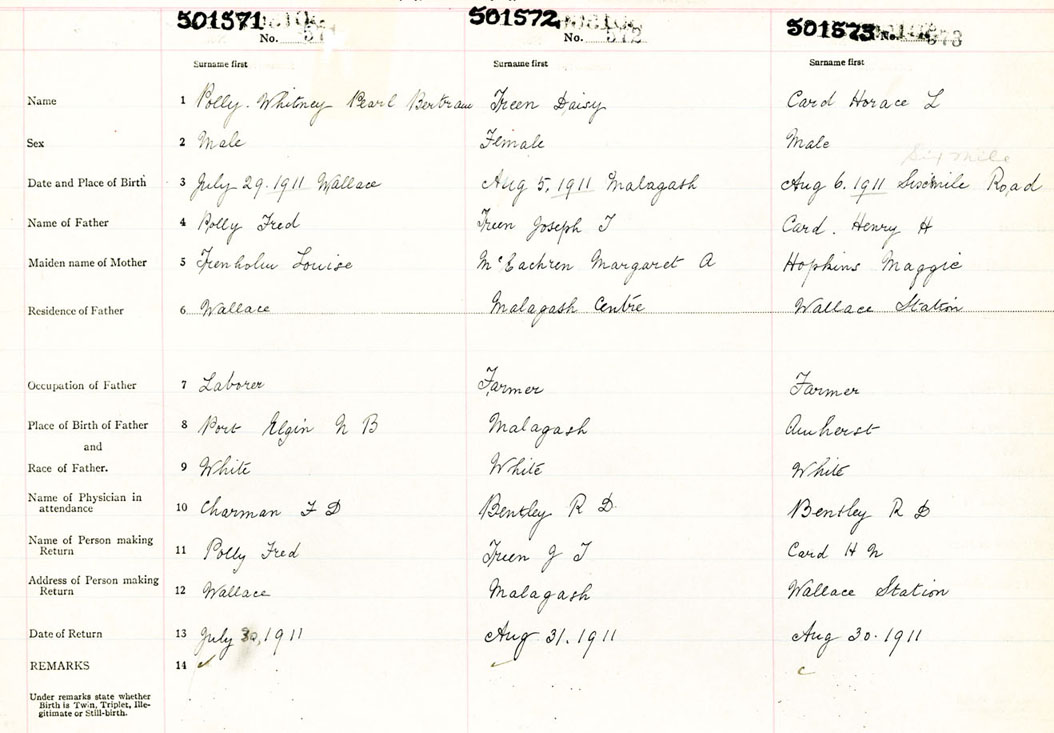 501571 501572 501573
No. 571 No. 572 No. 573
Surname first Surname first Surname first
Name 1 Polly. Whitney Pearl Bertram Treen Daisy Card Horace L
Sex 2 Male Female Male
Six Mile
Date and Place of Birth 3 July 29. 1911 Wallace Aug 5, 1911 Malagash Aug 6. 1911 Road
Name of Father 4 Polly Fred Treen Joseph T Card. Henry H
Maiden name of Mother 5 Trenholm Louise McEachren Margaret A Hopkins Maggie
Residence of Father 6 Wallace Malagash Centre Wallace Station
Occupation of Father 7 Laborer Farmer Farmer
Place of Birth of Father 8 Port Elgin N B Malagash Amherst
and
Race of Father. 9 White White White
Name of Physician in
attendance 10 Charman F D Bentley R D. Bentley R D
Name of Person making
Return 11 Polly Fred Treen J T Card H
Address of Person making
Return 12 Wallace Malagash Wallace Station
Date of Return 13 July 30, 1911 Aug 31. 1911 Aug 30. 1911
REMARKS 14
Under remarks state whether
Birth is Twin, Triplet, Ille-
gitimate or Still-birth.